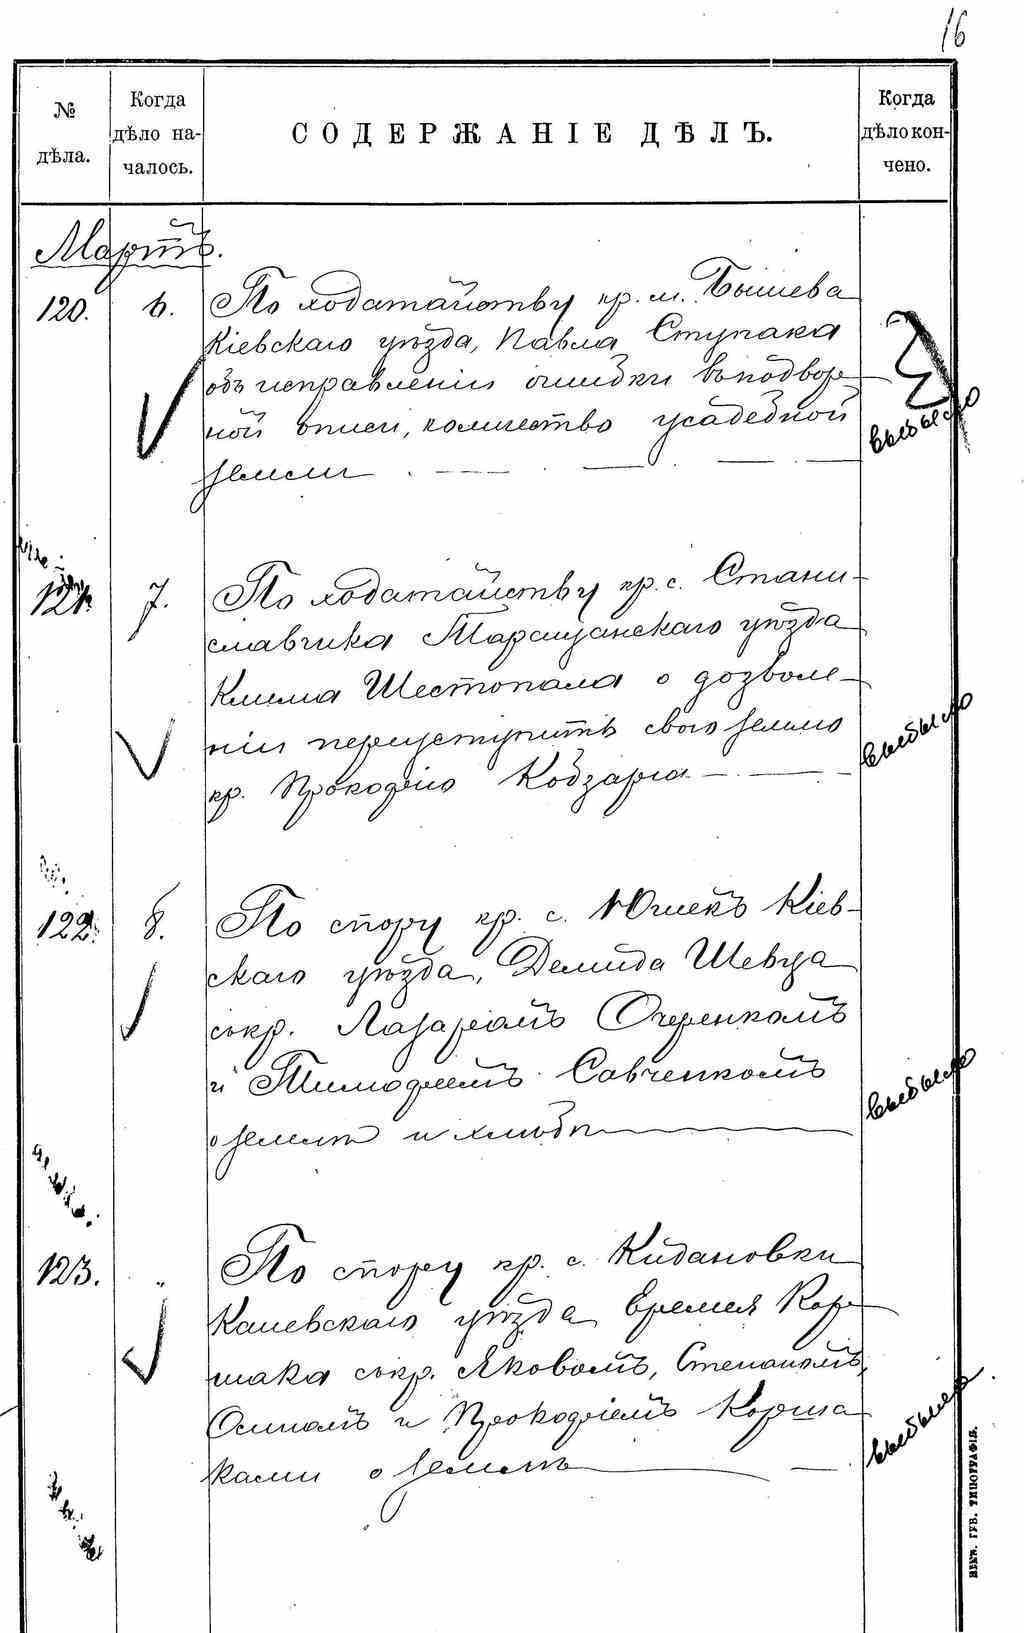 16
№ дѣла.
Когда дѣло началось.
СОДЕРЖАНІЕ ДѢЛЪ.
Когда дѣло кончено.
Мартъ.
120. 6. По ходатайству кр. м. Бышева
Кіевскаго уѣзда, Павла Ступака
объ исправленіи ошибки въ подвор-
ной описи, количество усадебной
земли
выбыло
121. 7. По ходатайству кр. с. Стани-
славчика Таращанскаго уѣзда
Клима Шестопала о дозволе-
ніи переуступить свою землю
кр. Прокофію Кобзарю
выбыло
122. 8. По спору кр. с. Юшекъ Кіев-
скаго уѣзда, Демида Шевца
съ кр. Лазаремъ Очеренкомъ
и Тимофеемъ Савченкомъ
о землѣ и хлѣбѣ
выбыло
123. " По спору кр. с. Кидановки
Каневскаго уѣзда Еремея Кор-
шака съ кр. Яковомъ, Степаномъ,
Осипомъ и Прокофіемъ Корша-
ками о землѣ
выбыло
ГУБ. ТИПОГРАФІЯ.